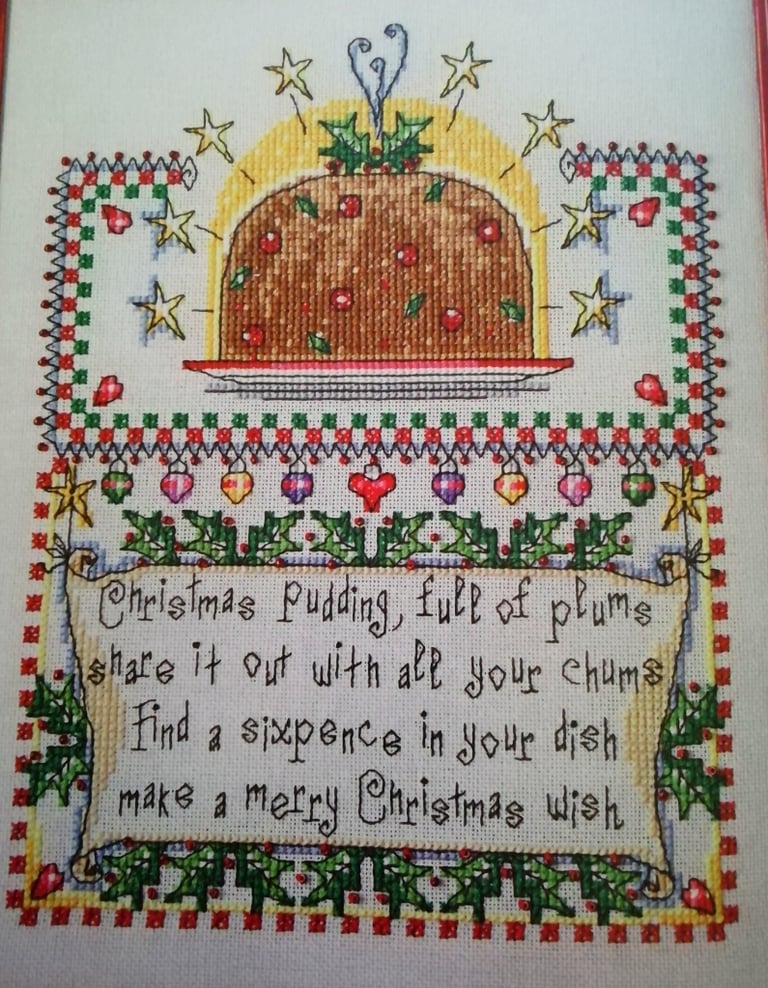 Christmas Pudding, full of plums
share it out with all your chums
Find a sixpence in your dish
make a merry Christmas wish